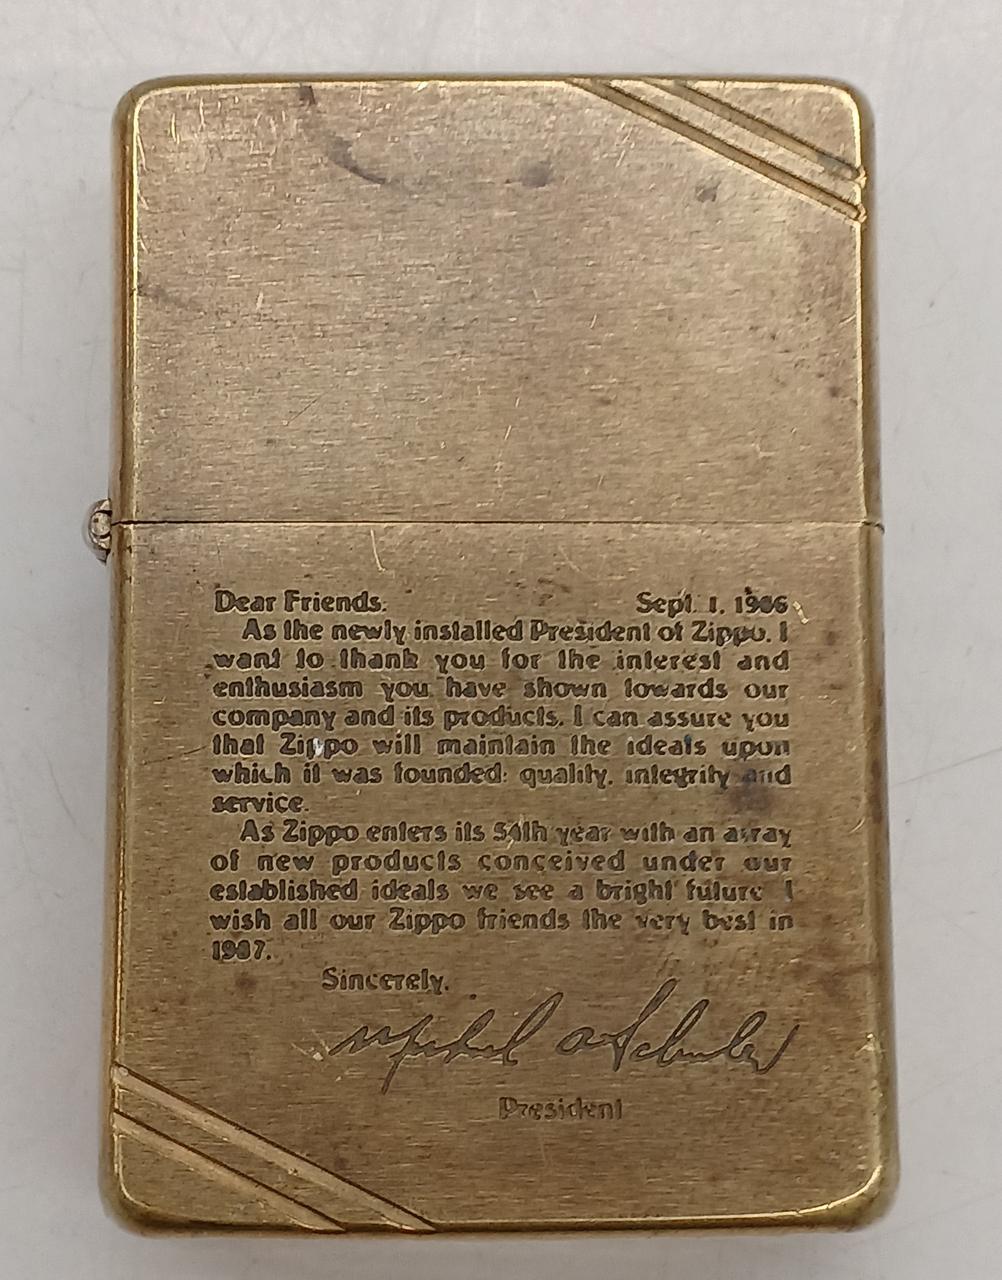 Dear Friends, Sept. 1, 1986
As the newly installed President of Zippo, I
want to thank you for the interest and
enthusiasm you have shown towards our
company and its products. I can assure you
that Zippo will maintain the ideals upon
which it was founded: quality, integrity and
service.
As Zippo enters its 54th year with an array
of new products conceived under our
established ideals we see a bright future I
wish all our Zippo friends the very best in
1987.
Sincerely,
President